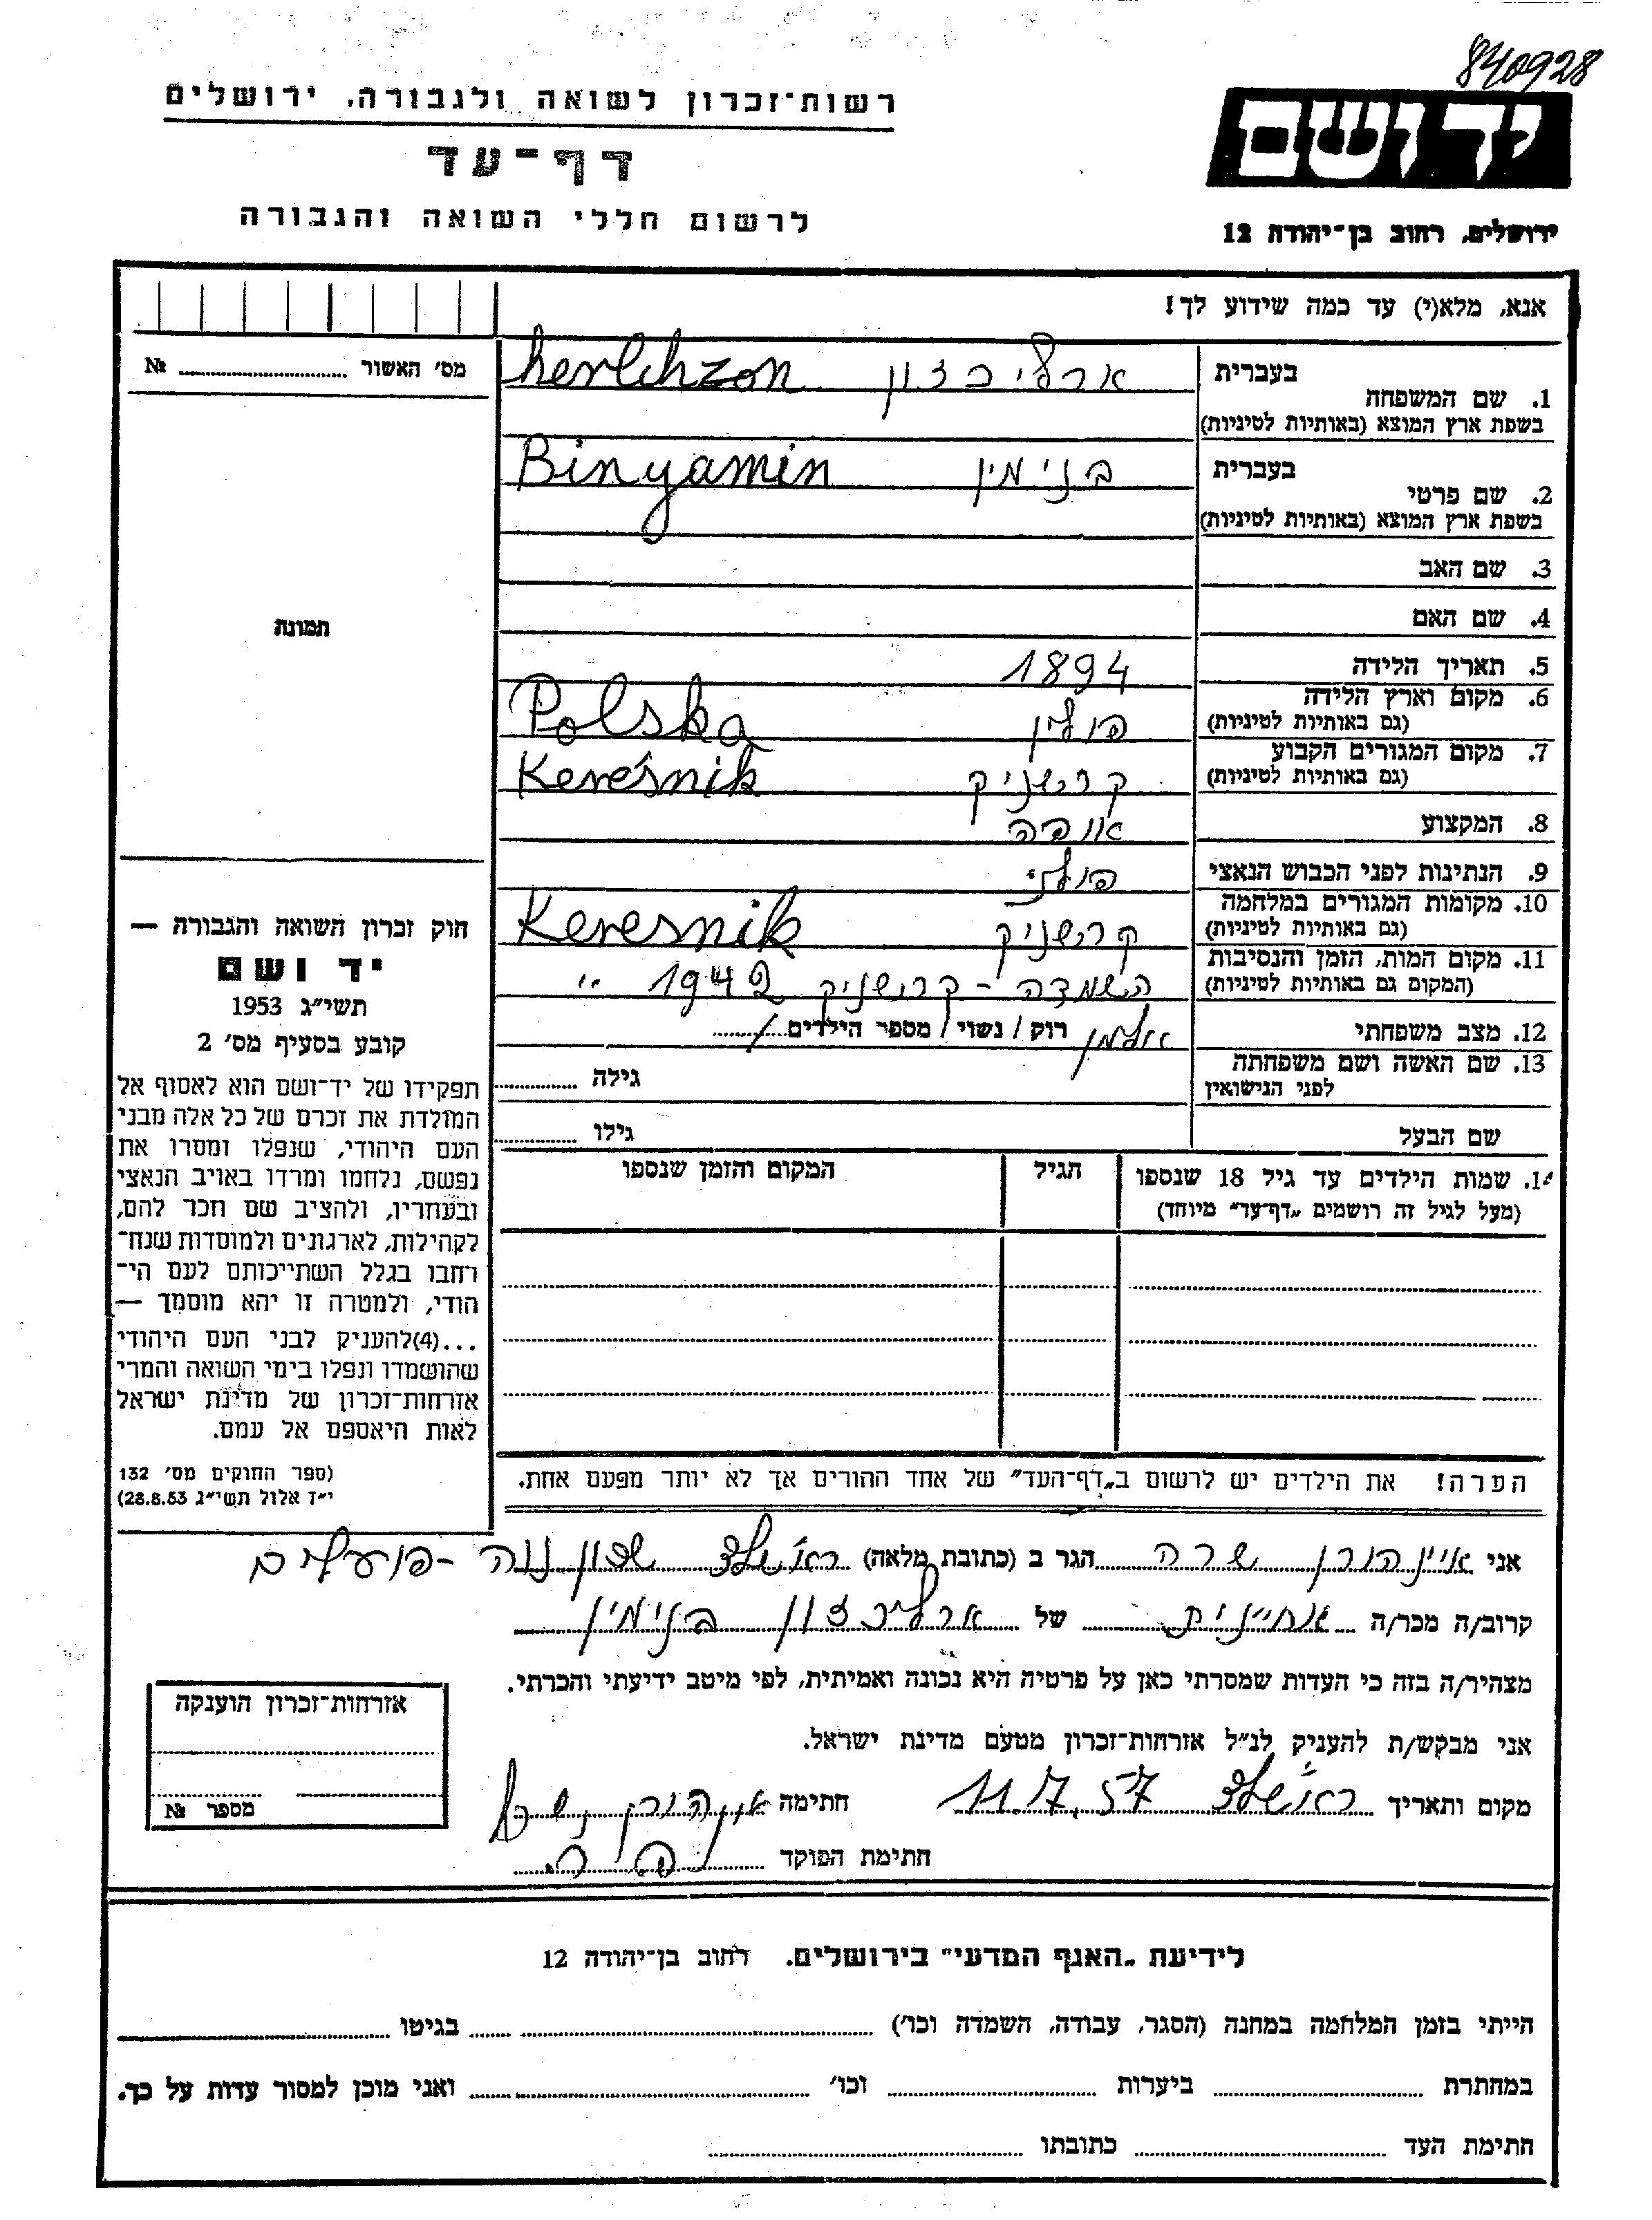 840928
יד ושם
ירושלים, רחוב בן־יהודה 12
רשות־זכרון לשואה ולגבורה, ירושלים
דף־עד
לרשום חללי השואה והגבורה
אנא, מלא(י) עד כמה שידוע לך!
בעברית ארליכזון herlchzon
1. שם המשפחה
בשפת ארץ המוצא (באותיות לטיניות)
בעברית בנימין Binyamin
2. שם פרטי
בשפת ארץ המוצא (באותיות לטיניות)
3. שם האב
4. שם האם
5. תאריך הלידה 1894
6. מקום וארץ הלידה פולין Polska
(גם באותיות לטיניות)
7. מקום המגורים הקבוע קרשניק Kereśnik
(גם באותיות לטיניות)
8. המקצוע אופה
9. הנתינות לפני הכבוש הנאצי פולני
10. מקומות המגורים במלחמה קרשניק Keresnik
(גם באותיות לטיניות)
11. מקום המות, הזמן והנסיבות השמדה - קרשניק 1942 "
(המקום גם באותיות לטיניות)
12. מצב משפחתי אלמן רוק / נשוי / מספר הילדים
13. שם האשה ושם משפחתה גילה
לפני הנישואין
שם הבעל גילו
14. שמות הילדים עד גיל 18 שנספו הגיל המקום והזמן שנספו
(מעל לגיל זה רושמים „דף־עד" מיוחד)
הערה! את הילדים יש לרשום ב„דף־העד" של אחד ההורים אך לא יותר מפעם אחת.
מס' האשור №
תמונה
חוק זכרון השואה והגבורה —
יד ושם
תשי״ג 1953
קובע בסעיף מס' 2
תפקידו של יד־ושם הוא לאסוף אל
המולדת את זכרם של כל אלה מבני
העם היהודי, שנפלו ומסרו את
נפשם, נלחמו ומרדו באויב הנאצי
ובעוזריו, ולהציב שם וזכר להם,
לקהילות, לארגונים ולמוסדות שנח־
רחבו בגלל השתייכותם לעם הי־
הודי, ולמטרה זו יהא מוסמך —
...(4)להעניק לבני העם היהודי
שהושמדו ונפלו בימי השואה והמרי
אזרחות־זכרון של מדינת ישראל
לאות היאספם אל עמם.
(ספר החוקים מס' 132
י״ז אלול תשי״ג 28.8.53)
אני איינהורן שרה הגר ב (כתובת מלאה) ראשל"צ שכון נוה-פועלים
קרוב/ה מכר/ה אחיינית של ארליכזון בנימין
מצהיר/ה בזה כי העדות שמסרתי כאן על פרטיה היא נכונה ואמיתית, לפי מיטב ידיעתי והכרתי.
אני מבקש/ת להעניק לנ״ל אזרחות־זכרון מטעם מדינת ישראל.
מקום ותאריך ראשל"צ 11.7.57 חתימה
חתימת הפוקד
אזרחות־זכרון הוענקה
מספר №
לידיעת „האגף המדעי" בירושלים. רחוב בן־יהודה 12
הייתי בזמן המלחמה במחנה (הסגר, עבודה, השמדה וכו') בגיטו
במחתרת ביערות וכו' ואני מוכן למסור עדות על כך.
חתימת העד כתובתו